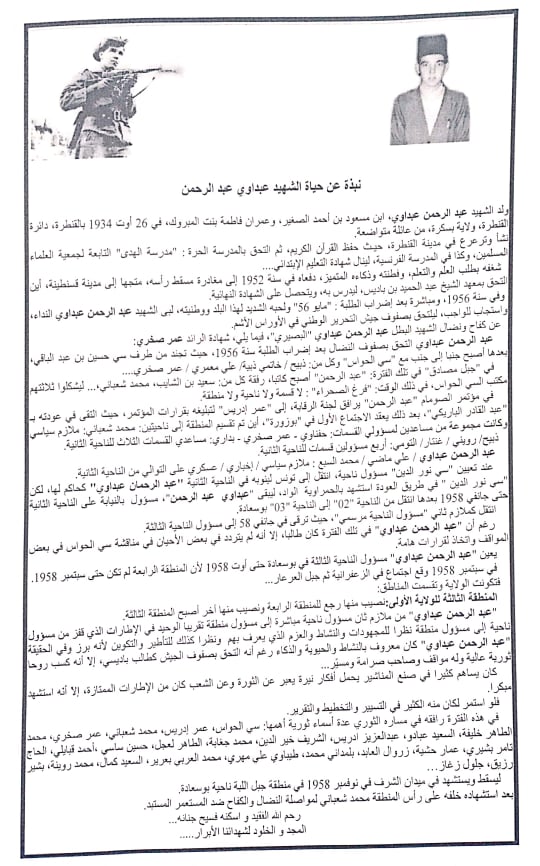 نبذة عن حياة الشهيد عبداوي عبد الرحمن
ولد الشهيد عبد الرحمن عبداوي، ابن مسعود بن أحمد الصغير، وعمران فاطمة بنت المبروك، في 26 أوت 1934 بالقنطرة، دائرة
القنطرة، ولاية بسكرة، من عائلة متواضعة.
نشأ وترعرع في مدينة القنطرة، حيث حفظ القرآن الكريم، ثم التحق بالمدرسة الحرة : "مدرسة الهدى" التابعة لجمعية العلماء
المسلمين، وكذا في المدرسة الفرنسية، لينال شهادة التعليم الإبتدائي....
شغفه بطلب العلم والتعلم، وفطنته وذكاءه المتميز، دفعاه في سنة 1952 إلى مغادرة مسقط رأسه، متجها إلى مدينة قسنطينة، أين
التحق بمعهد الشيخ عبد الحميد بن باديس، ليدرس به، ويتحصل على الشهادة النهائية.
وفي سنة 1956، ومباشرة بعد إضراب الطلبة : "مايو 56" ولحبه الشديد لهذا البلد ووطنيته، لبى الشهيد عبد الرحمن عبداوي النداء،
واستجاب للواجب، ليلتحق بصفوف جيش التحرير الوطني في الأوراس الأشم.
عن كفاح ونضال الشهيد البطل عبد الرحمن عبداوي "البصيري"، فيما يلي، شهادة الرائد عمر صخري:
عبد الرحمن عبداوي التحق بصفوف النضال بعد إضراب الطلبة سنة 1956، حيث تجند من طرف سي حسين بن عبد الباقي،
بعدها أصبح جنبا إلى جنب مع "سي الحواس" وكل من: ذبيح / خاتمي ذبية/ علي معمري / عمر صخري....
في "جبل مصادق" في تلك الفترة: "عبد الرحمن" أصبح كاتبا، رفقة كل من: سعيد بن الشايب، محمد شعباني،... ليشكلوا ثلاثتهم
مكتب السي الحواس، في ذلك الوقت: "فرغ الصحراء" : لا قسمة ولا ناحية ولا منطقة.
في مؤتمر الصومام "عبد الرحمن" يرافق لجنة الرقابة، إلى "عمر إدريس" لتبليغه بقرارات المؤتمر، حيث التقى في عودته بـ
"عبد القادر الباريكي"، بعد ذلك يعقد الاجتماع الأول في "بوزورة"، أين تم تقسيم المنطقة إلى ناحيتين: محمد شعباني: ملازم سياسي
وكانت مجموعة من مساعدين لمسؤولي القسمات: حفناوي - عمر صخري - بداري: مساعدي القسمات الثلاث للناحية الثانية.
ذبيح/ رويني / غنتار/ التومي: أربع مسؤولين قسمات للناحية الثانية.
عبد الرحمن عبداوي / علي ماضي / محمد السبع : ملازم سياسي / إخباري / عسكري على التوالي من الناحية الثانية.
عند تعيين "سي نور الدين" مسؤول ناحية، إنتقل إلى تونس لينوبه في الناحية الثانية "عبد الرحمان عبداوي" كحاكم لها، لكن
"سي نور الدين " في طريق العودة استشهد بالحمراوية الواد، ليبقى "عبداوي عبد الرحمن"، مسؤول بالنيابة على الناحية الثانية
حتى جانفي 1958 بعدها انتقل من الناحية "02" إلى الناحية "03" بوسعادة.
انتقل كملازم ثاني "مسؤول الناحية مرسمي"، حيث ترقى في جانفي 58 إلى مسؤول الناحية الثالثة.
رغم أن "عبد الرحمن عبداوي" في تلك الفترة كان طالبا، إلا أنه لم يتردد في بعض الأحيان في مناقشة سي الحواس في بعض
المواقف واتخاذ لقرارات هامة.
يعين "عبد الرحمن عبداوي" مسؤول الناحية الثالثة في بوسعادة حتى أوت 1958 لأن المنطقة الرابعة لم تكن حتى سبتمبر 1958.
في سبتمبر 1958 وقع اجتماع في الزعفرانية ثم جبل العرعار...
فتكونت الولاية وتقسمت المناطق:
المنطقة الثالثة للولاية الأولى:نصيب منها رجع للمنطقة الرابعة ونصيب منها أخر أصبح المنطقة الثالثة.
"عبد الرحمن عبداوي" من ملازم ثان مسؤول ناحية مباشرة إلى مسؤول منطقة تقريبا الوحيد في الإطارات الذي قفز من مسؤول
ناحية إلى مسؤول منطقة نظرا للمجهودات والنشاط والعزم الذي يعرف بهم ونظرا كذلك للتأطير والتكوين لأنه برز وفي الحقيقة
"عبد الرحمن عبداوي" كان معروف بالنشاط والحيوية والذكاء رغم أنه التحق بصفوف الجيش كطالب باديسي، إلا أنه كسب روحا
ثورية عالية وله مواقف وصاحب صرامة ومسير...
كان يساهم كثيرا في صنع المناشير يحمل أفكار نيرة يعبر عن الثورة وعن الشعب كان من الإطارات الممتازة، إلا أنه استشهد
مبكرا.
فلو استمر لكان منه الكثير في التسيير والتخطيط والتقرير.
في هذه الفترة رافقه في مساره الثوري عدة أسماء ثورية أهمها: سي الحواس، عمر إدريس، محمد شعباني، عمر صخري، محمد
الطاهر خليفة، السعيد عبادو، عبدالعزيز ادريس، الشريف خير الدين، محمد جغابة، الطاهر لعجل، حسين ساسي ،أحمد قبايلي، الحاج
تامر بشيري، عمار حشية، زروال العابد، بلمداني محمد، طيباوي علي مهري، محمد العربي بعرير، السعيد كمال، محمد روينة، بشير
رزيق، جلول زغاز...
ليسقط ويستشهد في ميدان الشرف في نوفمبر 1958 في منطقة جبل اللبة ناحية بوسعادة.
بعد استشهاده خلفه على رأس المنطقة محمد شعباني لمواصلة النضال والكفاح ضد المستعمر المستبد.
رحم الله الفقيد و اسكنه فسيح جنانه...
المجد و الخلود لشهدائنا الأبرار.....